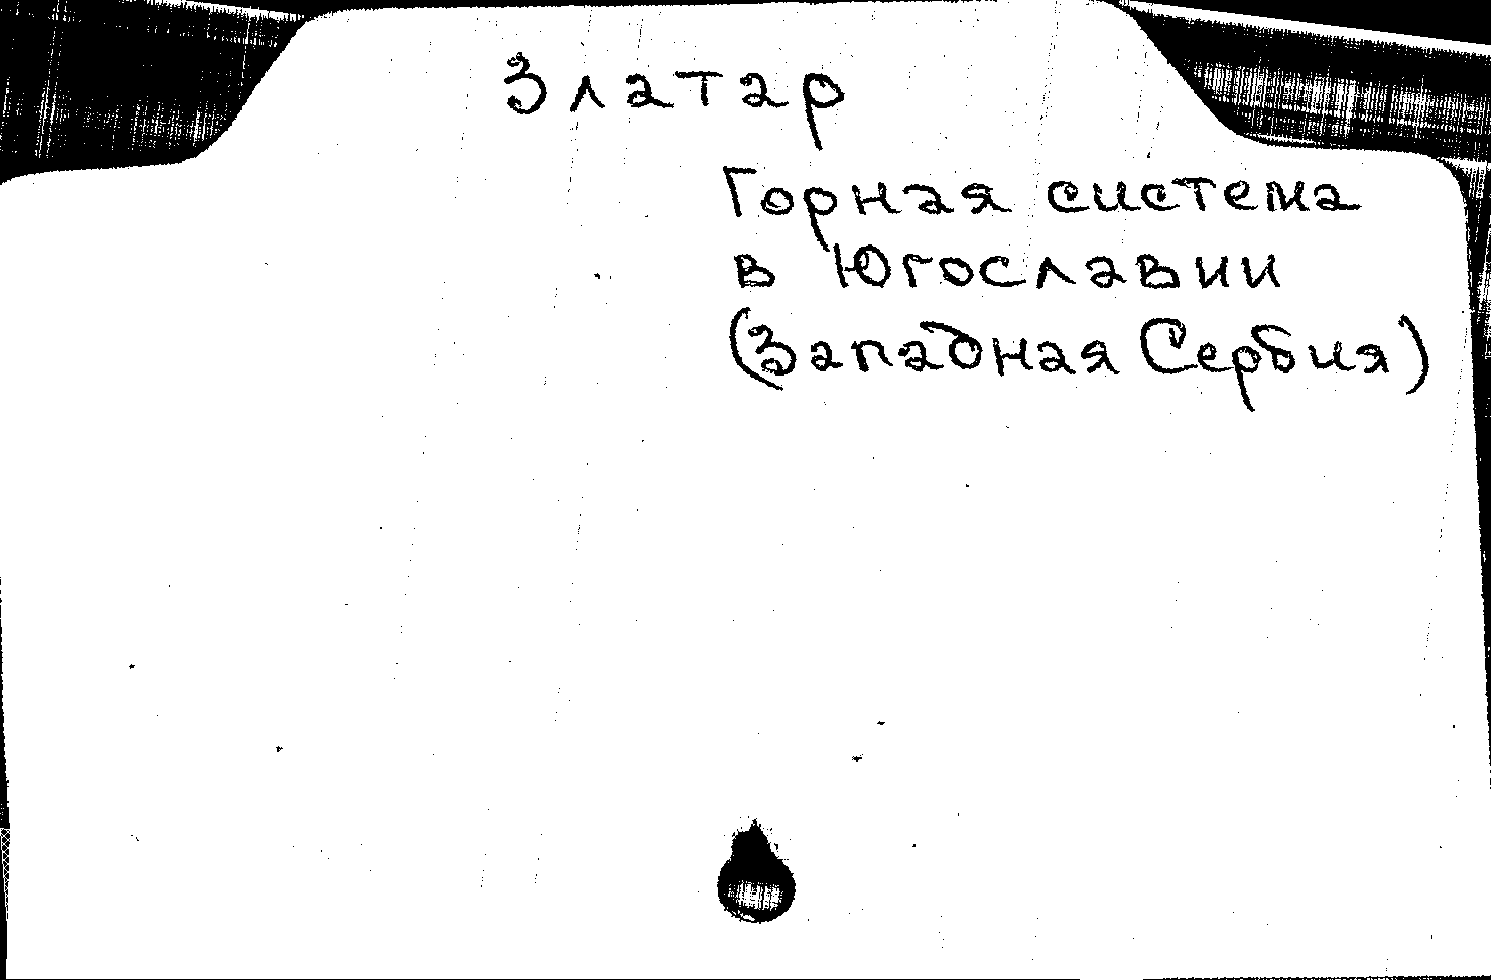 Златар
Горная система
в Югославии
(Западная Сербия)